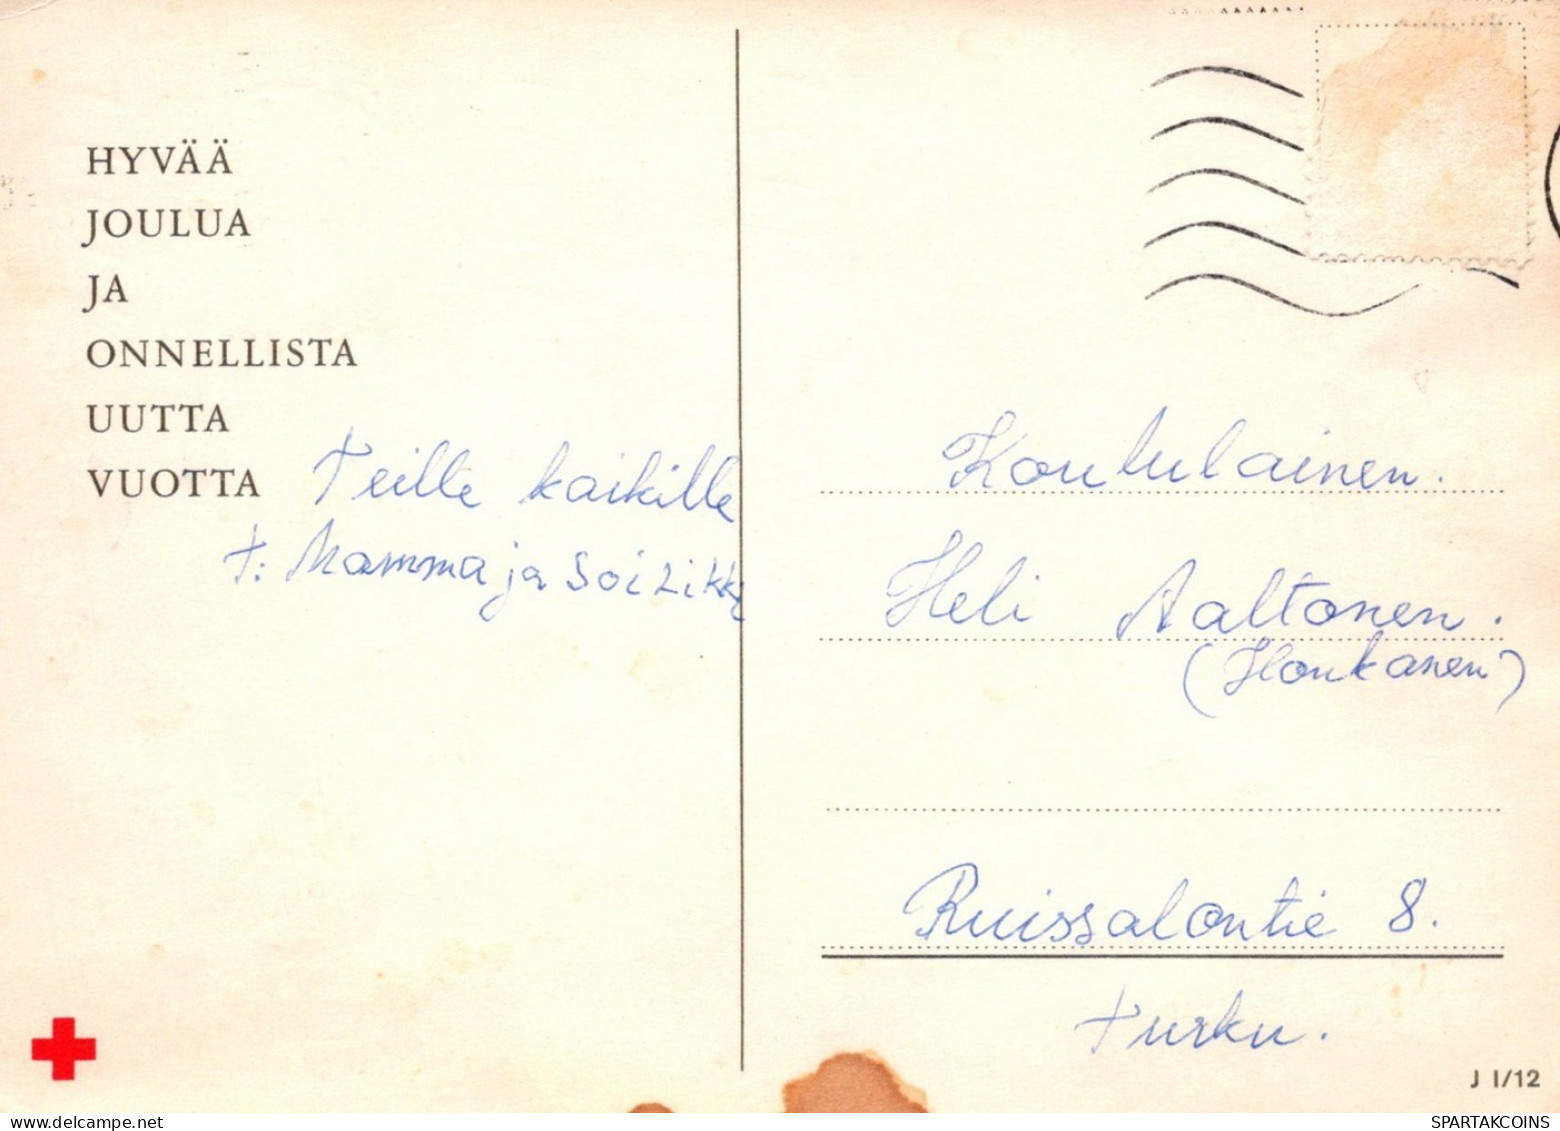 HYVÄÄ
JOULUA
JA
ONNELLISTA
UUTTA
VUOTTA
Teille kaikille
t: Mamma ja
Koululainen.
Heli Aaltonen.
(Honkanen)
Ruissalontie 8.
Turku.
J I/12
SPARTAKCOINS